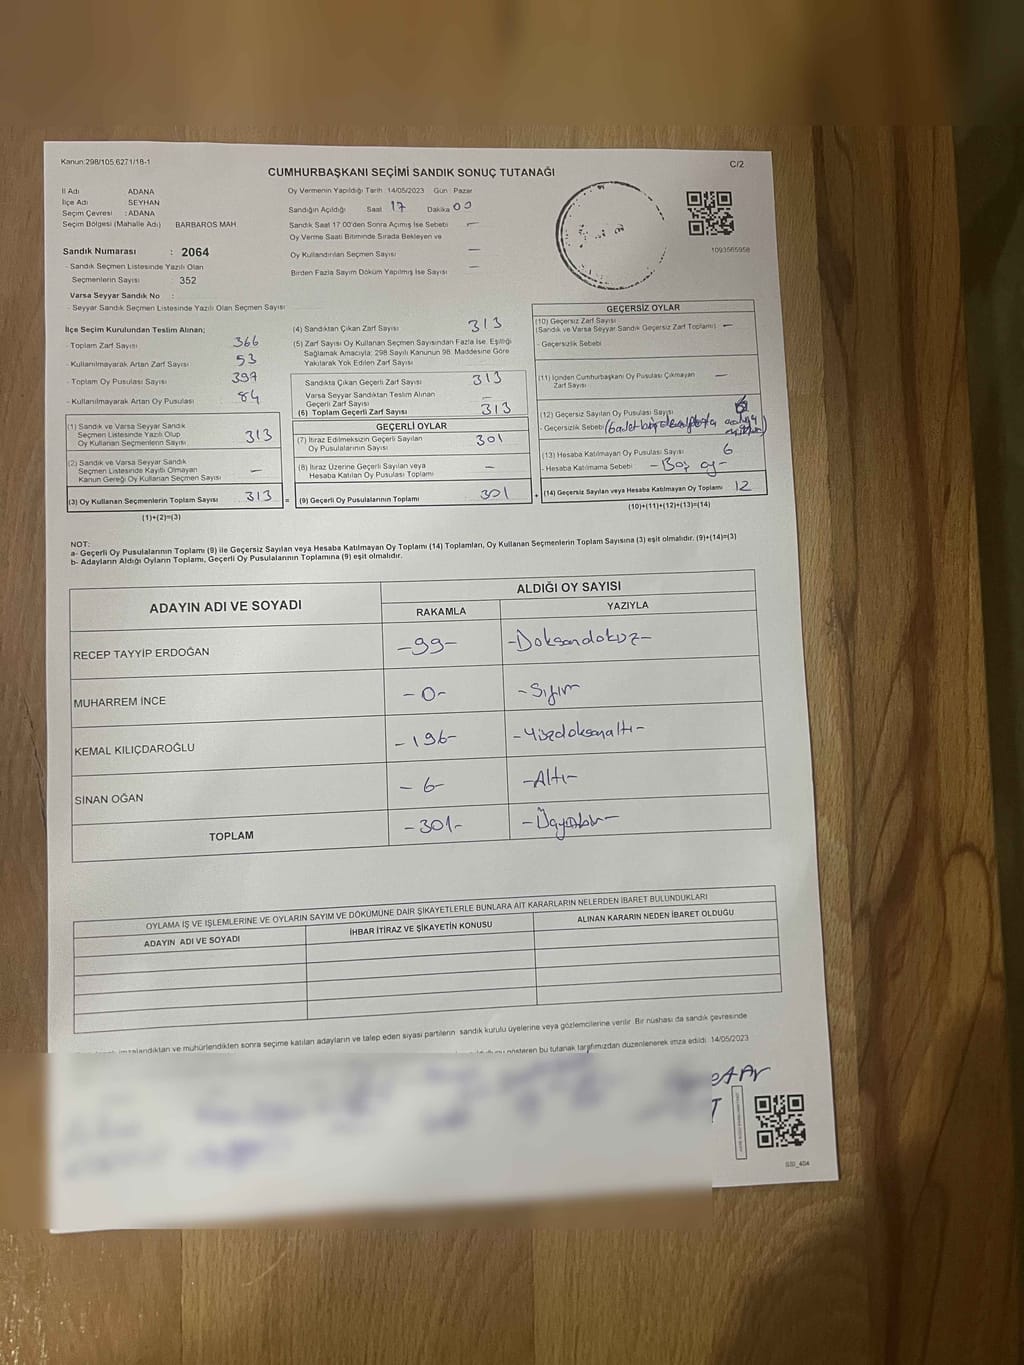 Kanun:298/105,6271/18-1
C/2
CUMHURBAŞKANI SEÇİMİ SANDIK SONUÇ TUTANAĞI
İl Adı ADANA
İlçe Adı SEYHAN
Seçim Çevresi : ADANA
Seçim Bölgesi (Mahalle Adı) BARBAROS MAH
Oy Vermenin Yapıldığı Tarih :14/05/2023 Gün : Pazar
Sandığın Açıldığı Saat 17 Dakika 00
Sandık Saat 17.00'den Sonra Açılmış İse Sebebi —
Oy Verme Saati Bitiminde Sırada Bekleyen ve
Oy Kullandırılan Seçmen Sayısı —
Birden Fazla Sayım Döküm Yapılmış İse Sayısı —
1093565958
Sandık Numarası : 2064
- Sandık Seçmen Listesinde Yazılı Olan
Seçmenlerin Sayısı : 352
Varsa Seyyar Sandık No :
- Seyyar Sandık Seçmen Listesinde Yazılı Olan Seçmen Sayısı
İlçe Seçim Kurulundan Teslim Alınan;
- Toplam Zarf Sayısı 366
- Kullanılmayarak Artan Zarf Sayısı 53
- Toplam Oy Pusulası Sayısı 397
- Kullanılmayarak Artan Oy Pusulası 84
(1) Sandık ve Varsa Seyyar Sandık
Seçmen Listesinde Yazılı Olup
Oy Kullanan Seçmenlerin Sayısı 313
(2) Sandık ve Varsa Seyyar Sandık
Seçmen Listesinde Kayıtlı Olmayan
Kanun Gereği Oy Kullanan Seçmen Sayısı —
(3) Oy Kullanan Seçmenlerin Toplam Sayısı 313 =
(1)+(2)=(3)
(4) Sandıktan Çıkan Zarf Sayısı 313
(5) Zarf Sayısı Oy Kullanan Seçmen Sayısından Fazla İse, Eşitliği
Sağlamak Amacıyla, 298 Sayılı Kanunun 98. Maddesine Göre
Yakılarak Yok Edilen Zarf Sayısı
Sandıkta Çıkan Geçerli Zarf Sayısı 313
Varsa Seyyar Sandıktan Teslim Alınan
Geçerli Zarf Sayısı —
(6) Toplam Geçerli Zarf Sayısı 313
GEÇERLİ OYLAR
(7) İtiraz Edilmeksizin Geçerli Sayılan
Oy Pusulalarının Sayısı 301
(8) İtiraz Üzerine Geçerli Sayılan veya
Hesaba Katılan Oy Pusulası Toplamı —
(9) Geçerli Oy Pusulalarının Toplamı 301 +
GEÇERSİZ OYLAR
(10) Geçersiz Zarf Sayısı
(Sandık ve Varsa Seyyar Sandık Geçersiz Zarf Toplamı) —
- Geçersizlik Sebebi
(11) İçinden Cumhurbaşkanı Oy Pusulası Çıkmayan
Zarf Sayısı —
(12) Geçersiz Sayılan Oy Pusulası Sayısı 6
- Geçersizlik Sebebi (6 adet
(13) Hesaba Katılmayan Oy Pusulası Sayısı 6
- Hesaba Katılmama Sebebi -Boş oy-
(14) Geçersiz Sayılan veya Hesaba Katılmayan Oy Toplamı 12
(10)+(11)+(12)+(13)=(14)
NOT:
a- Geçerli Oy Pusulalarının Toplamı (9) ile Geçersiz Sayılan veya Hesaba Katılmayan Oy Toplamı (14) Toplamları, Oy Kullanan Seçmenlerin Toplam Sayısına (3) eşit olmalıdır. (9)+(14)=(3)
b- Adayların Aldığı Oyların Toplamı, Geçerli Oy Pusulalarının Toplamına (9) eşit olmalıdır.
ADAYIN ADI VE SOYADI
ALDIĞI OY SAYISI
RAKAMLA YAZIYLA
RECEP TAYYİP ERDOĞAN -99- -Doksandokuz-
MUHARREM İNCE -0- -Sıfır-
KEMAL KILIÇDAROĞLU -196- -Yüzdoksanaltı-
SİNAN OĞAN -6- -Altı-
TOPLAM -301- -Üçyüzbir-
OYLAMA İŞ VE İŞLEMLERİNE VE OYLARIN SAYIM VE DÖKÜMÜNE DAİR ŞİKAYETLERLE BUNLARA AİT KARARLARIN NELERDEN İBARET BULUNDUKLARI
ADAYIN ADI VE SOYADI İHBAR İTİRAZ VE ŞİKAYETİN KONUSU ALINAN KARARIN NEDEN İBARET OLDUĞU
imzalandıktan ve mühürlendikten sonra seçime katılan adayların ve talep eden siyasi partilerin sandık kurulu üyelerine veya gözlemcilerine verilir. Bir nüshası da sandık çevresinde
gösteren bu tutanak tarafımızdan düzenlenerek imza edildi. 14/05/2023